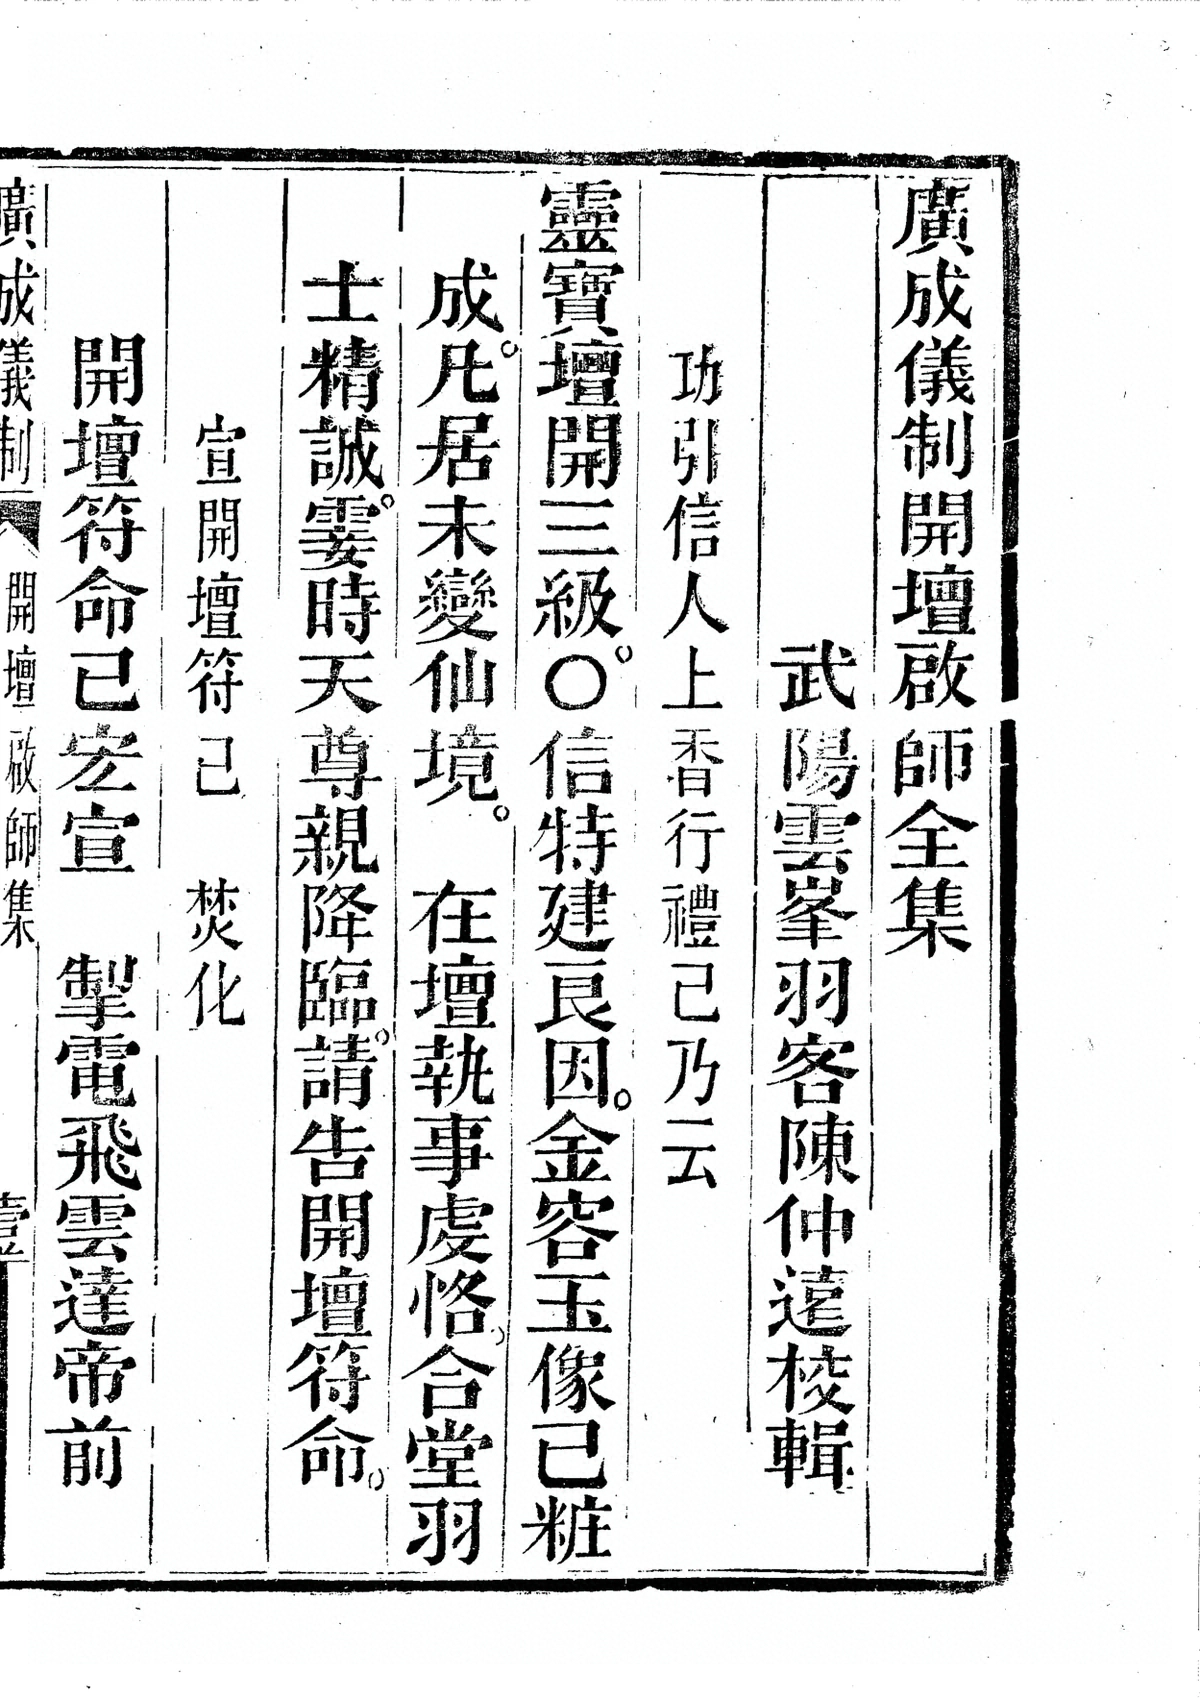 廣成儀制開壇啟師全集
武陽雲峯羽客陳仲遠校輯
功引信人上香行禮已乃云
靈寶壇開三級。〇信特建良因。金容玉像已粧
成。凡居未變仙境。　在壇執事虔恪。合堂羽
士精誠。霎時天尊親降臨。請告開壇符命。
宣開壇符已　焚化
開壇符命已宏宣　掣電飛雲達帝前
廣成儀制　開壇啟師集　壹